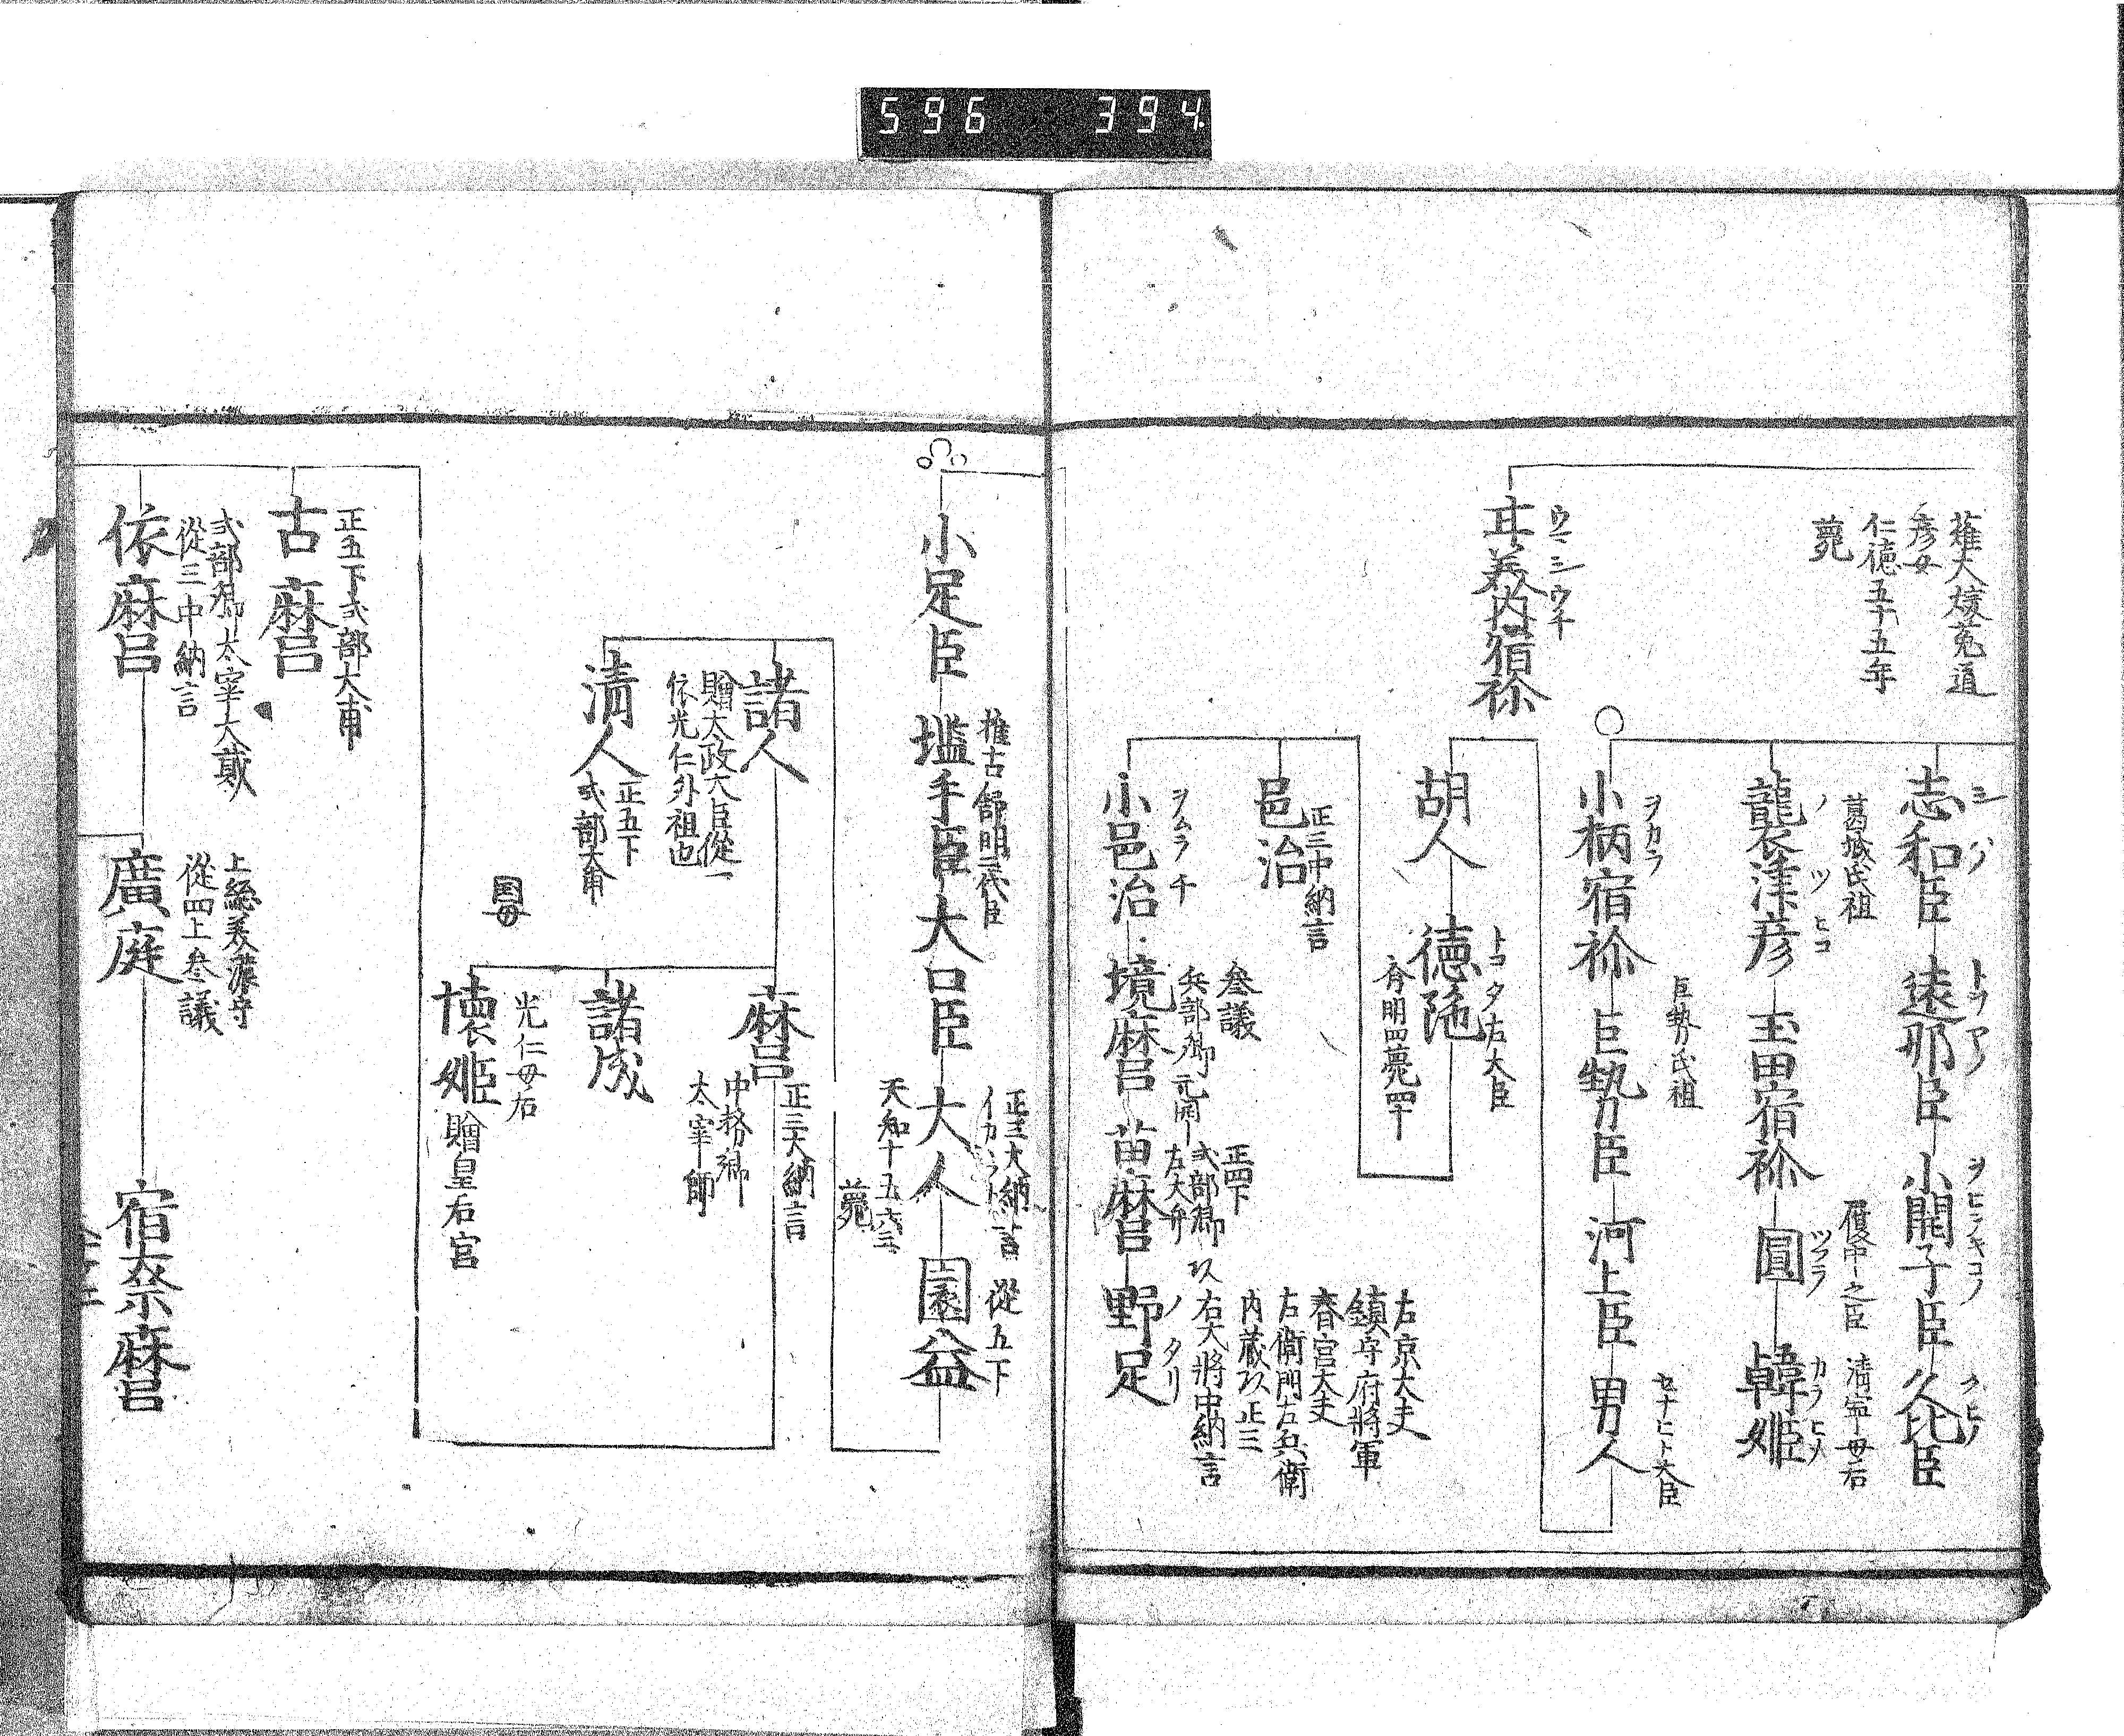 596 394
薙大嬡菟道
彦女
仁徳五十五年
薨
ウマシウチ
丗美内宿祢
志和臣
遠那臣
トヲアノ
小開子臣
久比臣
葛城氏祖
ソツヒコ
襲津彦
玉田宿祢
履中之臣
ツフラ
圓
清寧母后
カラヒメ
韓姫
ヲカラ
小柄宿祢
巨勢氏祖
巨勢臣
河上臣
男人
大臣
胡人
トコタ
左大臣
徳陁
斉明四薨
正三中納言
邑治
ヲムラチ
小邑治
参議
兵部卿
境麿
正四下
式部卿
左大弁
苗麿
左京大夫
鎮守府将軍
春宮大夫
左衛門左兵衛
内蔵
正三
右大将中納言
ノタリ
野足
小足臣
推古舒明二代臣
塩手臣
大口臣
正三大納言
大人
天知十五六三
薨
從五下
園益
諸人
贈太政大臣從一
依光仁外祖也
清人
正五下
式部大甫
麿
正三大納言
中務卿
太宰帥
諸成
国母
光仁母后
懐姫
贈皇后宮
正五下式部大甫
古麿
式部卿太宰大貳
從三中納言
依麿
上総美濃守
從四上参議
廣庭
宿奈麿